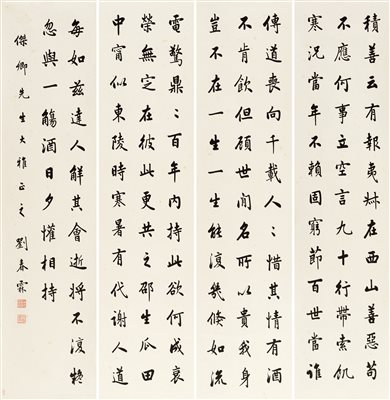 積善云有報夷叔在西山善惡苟
不應何事立空言九十行帶索飢
寒況當年不賴固窮節百世當誰
傳道喪向千載人〻惜其情有酒
不肯飲但顧世間名所以貴我身
豈不在一生一生能復幾倏如流
電驚鼎〻百年內持此欲何成衰
榮無定在彼此更共之邵生瓜田
中甯似東陵時寒暑有代謝人道
每如茲達人解其會逝將不復疑
忽與一觴酒日夕懽相持
傑卿先生大雅正之 劉春霖